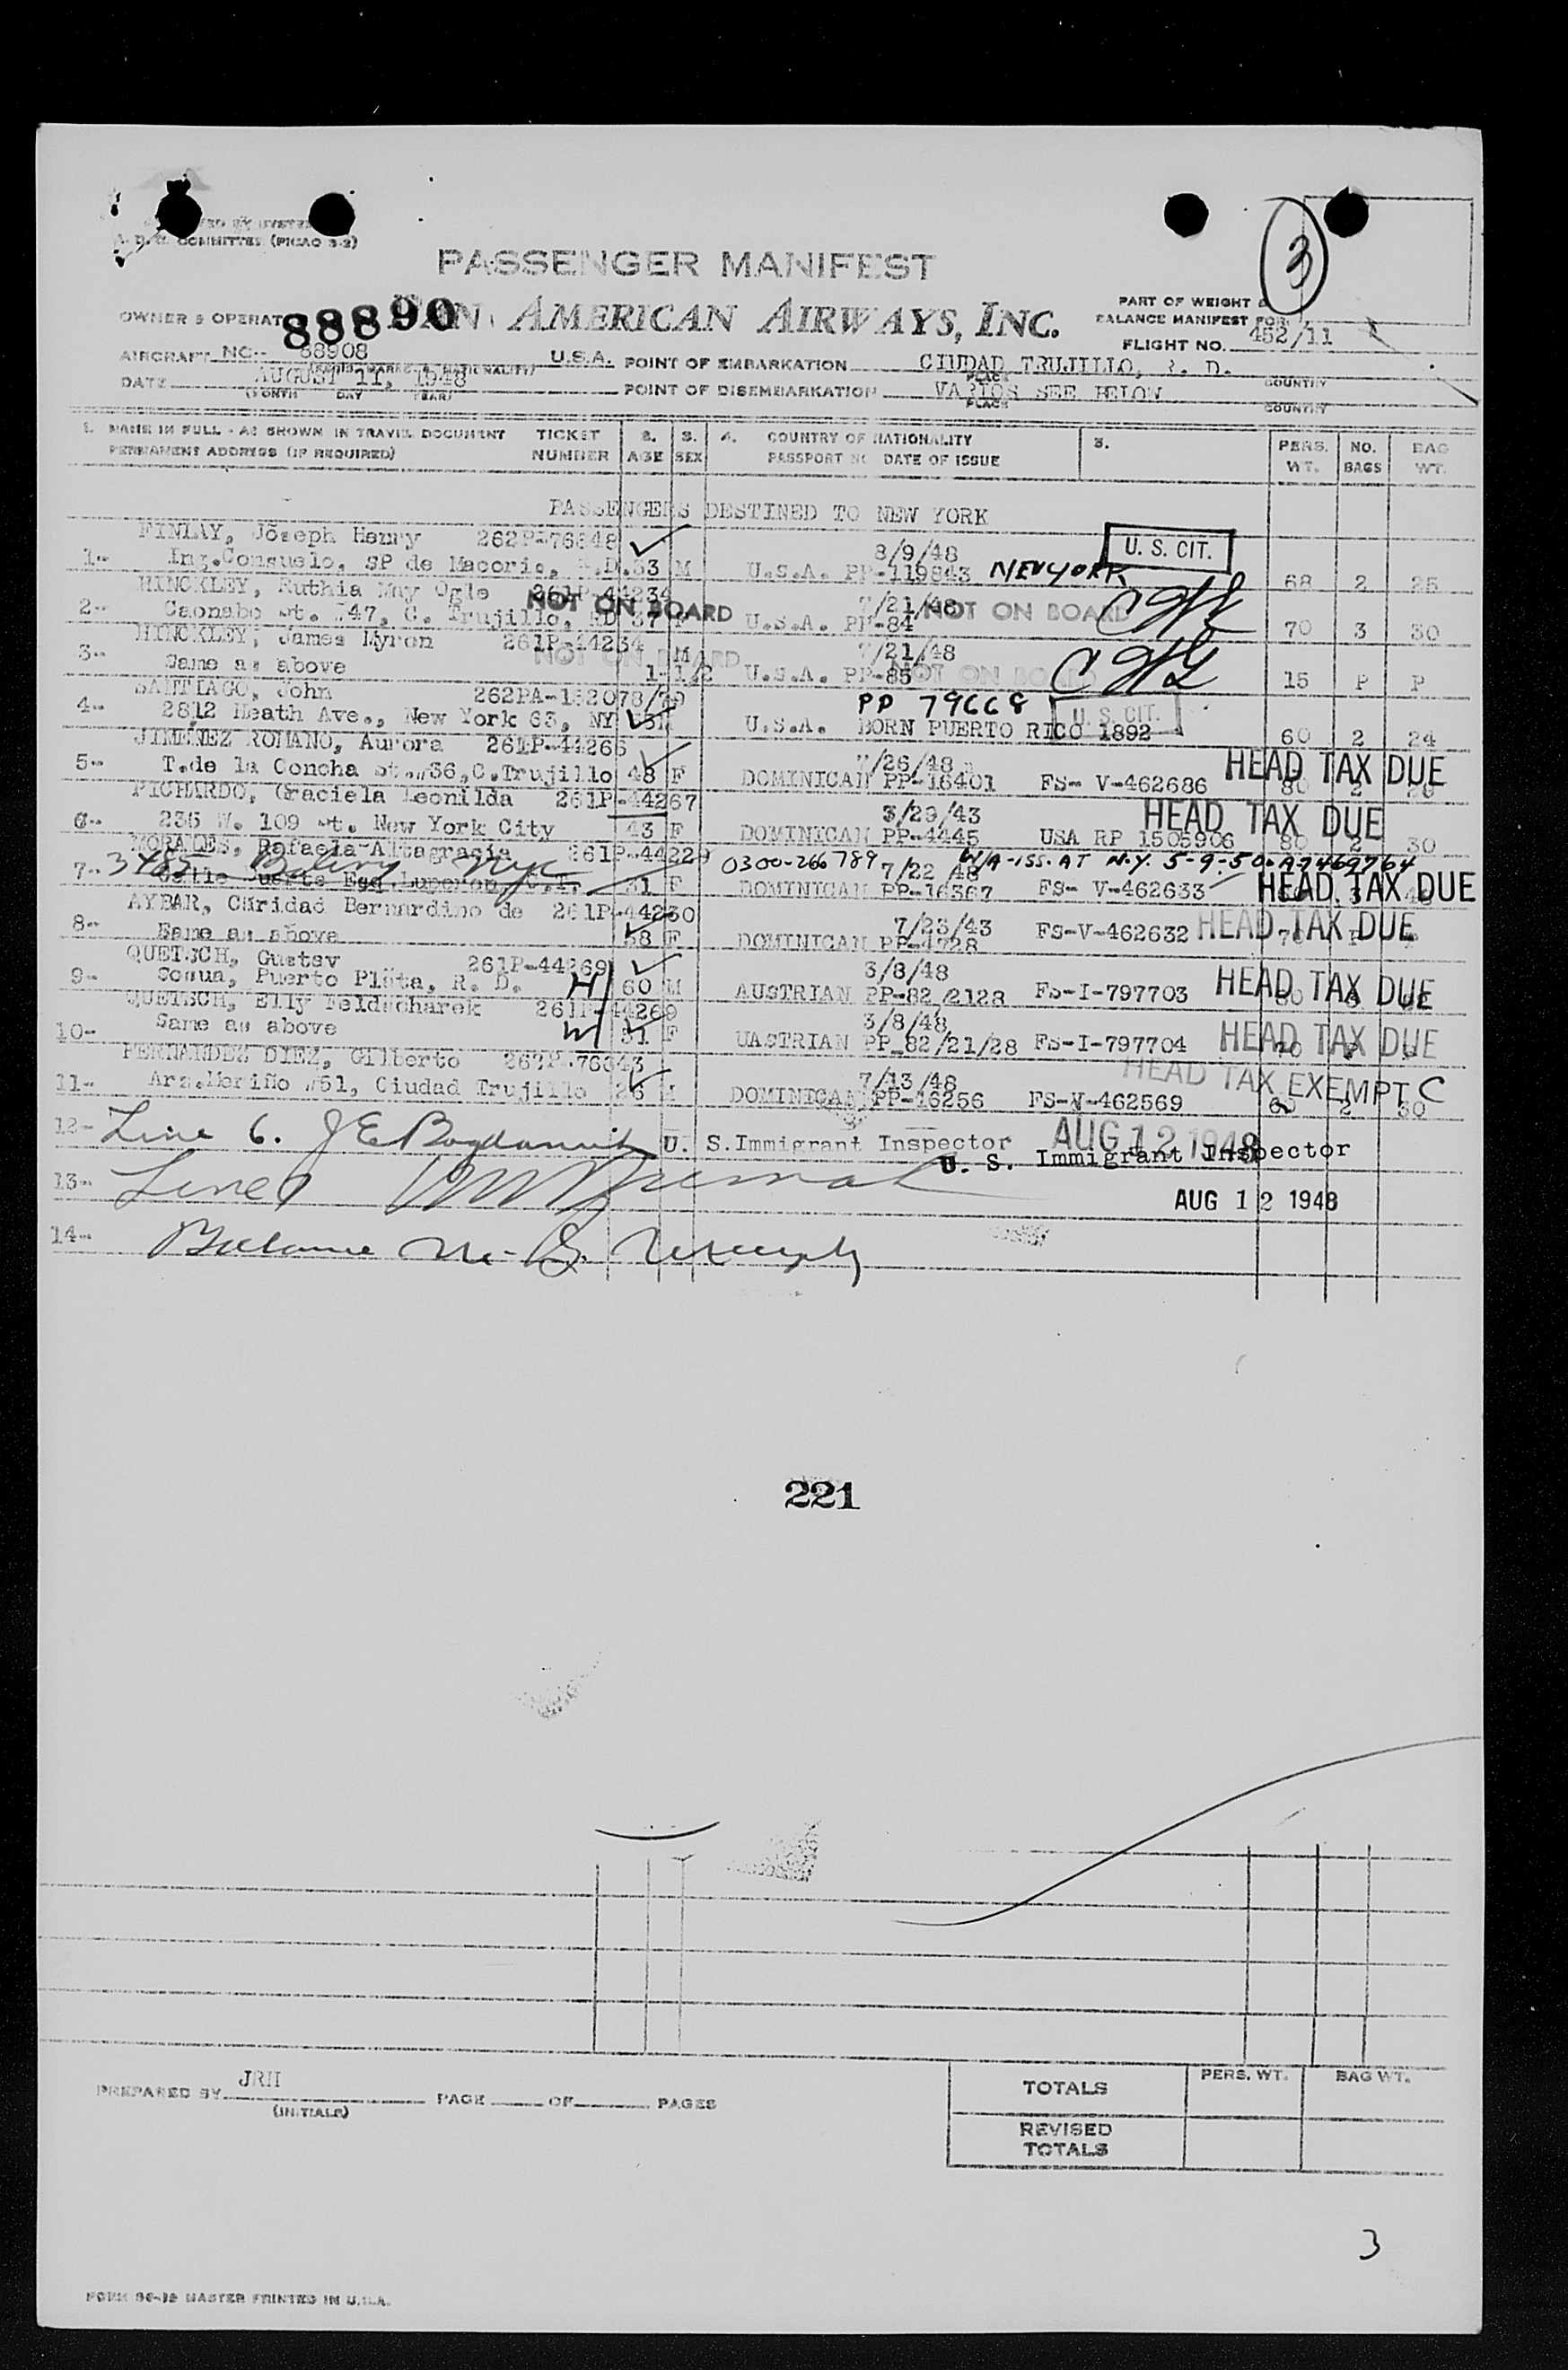 COMMITTEE (PICAO 3-2)
3
PASSENGER MANIFEST
OWNER & OPERAT
88890
PAN AMERICAN AIRWAYS, INC.
PART OF WEIGHT &
BALANCE MANIFEST FOR
FLIGHT NO. 452/11
AIRCRAFT NC-- 88908 U.S.A. POINT OF EMBARKATION CIUDAD TRUJILLO, R. D.
PLACE COUNTRY
DATE AUGUST 11, 1948 POINT OF DISEMBARKATION VARIOS SEE BELOW
(MONTH DAY YEAR) PLACE COUNTRY
1. NAME IN FULL - AS SHOWN IN TRAVEL DOCUMENT TICKET 2. 3. 4. COUNTRY OF NATIONALITY 5. PERS. NO. BAG
PERMANENT ADDRESS (IF REQUIRED) NUMBER AGE SEX PASSPORT NO DATE OF ISSUE WT. BAGS WT.
PASSENGERS DESTINED TO NEW YORK
FINLAY, Joseph Henry 262P-76648 8/9/48 U. S. CIT.
1-- Ing.Consuelo, SP de Macoris, R.D. 33 M U.S.A. PP-119843 NEW YORK 68 2 25
HINCKLEY, Ruthia May Ogle 261P-44234 7/21/48
NOT ON BOARD NOT ON BOARD
2-- Caonabo St. 47, C. Trujillo, RD 37 F U.S.A. PP-84 70 3 30
HINCKLEY, James Myron 261P-44234 M 7/21/48
NOT ON BOARD NOT ON BOARD
3-- Same as above 1-1/2 U.S.A. PP-85 15 P P
SANTIAGO, John 262PA-152078/79 PP 79668 U. S. CIT.
4-- 2812 Heath Ave., New York 63, NY U.S.A. BORN PUERTO RICO 1892 60 2 24
JIMENEZ ROMANO, Aurora 261P-44266 7/26/48 HEAD TAX DUE
5-- T.de la Concha St.#36,C.Trujillo 48 F DOMINICAN PP-16401 FS- V-462686 80 2
PICHARDO, Graciela Leonilda 261P-44267 3/29/43 HEAD TAX DUE
6-- 235 W. 109 St. New York City 43 F DOMINICAN PP-4445 USA RP 1505906 80 2 30
MORALES, Rafaela Altagracia 261P-44229 0300-266789 7/22/48 W/A-ISS. AT N.Y. 5-9-50. A7469764
7-- 3485 NYC 31 F DOMINICAN PP-16367 FS- V-462633 HEAD TAX DUE
AYBAR, Caridad Bernardino de 261P-44230 7/23/43 FS-V-462632 HEAD TAX DUE
8-- Same as above 58 F DOMINICAN PP-4728
QUETSCH, Gustav 261P-44269 3/8/48 HEAD TAX DUE
9-- Sosua, Puerto Plata, R. D. H 60 M AUSTRIAN PP-82/2128 FS-I-797703
QUETSCH, Elly Feldscharek 261P-44269 3/8/48 HEAD TAX DUE
10-- Same as above W 51 F UASTRIAN PP_82/21/28 FS-I-797704 70
FERNANDEZ DIEZ, Gilberto 262P-76643 7/13/48 HEAD TAX EXEMPT C
11-- Arz.Meriño #51, Ciudad Trujillo 26 M DOMINICAN PP-16256 FS-V-462569 60 2 30
12- Line 6. U. S. Immigrant Inspector AUG 12 1948
U. S. Immigrant Inspector
13- Line
AUG 12 1948
14-- Balance
221
PREPARED BY JRH PAGE OF PAGES
(INITIALS)
TOTALS PERS. WT. BAG WT.
REVISED
TOTALS
3
FORM 96-18 MASTER PRINTED IN U.S.A.